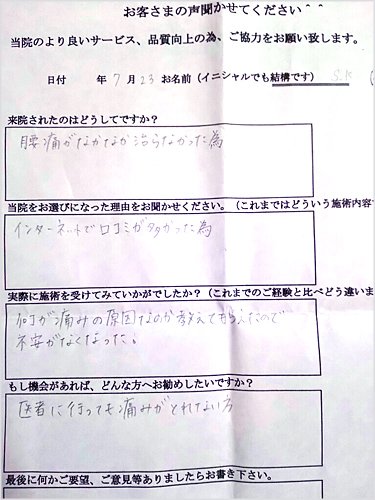 お客さまの声聞かせてください＾＾
当院のより良いサービス、品質向上の為、ご協力をお願い致します。
日付 年 7 月 23 お名前（イニシャルでも結構です） S.K (
来院されたのはどうしてですか？
腰痛がなかなか治らなかった為
当院をお選びになった理由をお聞かせください。（これまではどういう施術内容
インターネットで口コミが多かった為
実際に施術を受けてみていかがでしたか？（これまでのご経験と比べどう違いま
何が痛みの原因なのか教えてもらえたので
不安がなくなった。
もし機会があれば、どんな方へお勧めしたいですか？
医者に行っても痛みがとれない方
最後に何かご要望、ご意見等ありましたらお書き下さい。